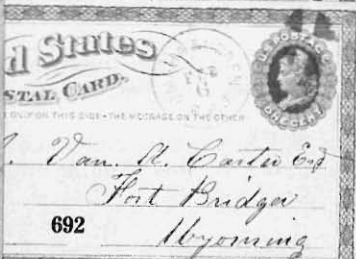 d States
STAL CARD.
ONLY ON THIS SIDE - THE MESSAGE ON THE OTHER
U.S. POSTAGE
ONE CENT
FEB
6
Van. A. Carter Esq
Fort Bridger
692
Wyoming